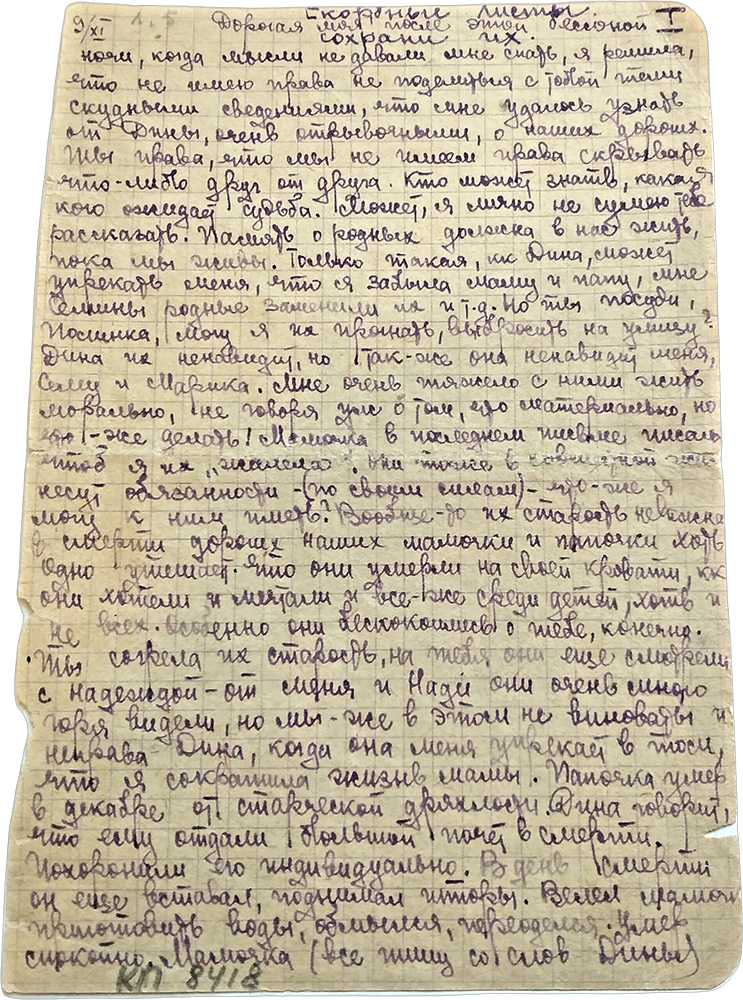 Скорбные листы. I
9/XI Дорогая моя после этой бессоной
сохрани их.
ночи, когда мысли не давали мне спать, я решила,
что не имею права не поделиться с тобой теми
скудными сведениями, что мне удалось узнать
от Дины, очень отрывочными, о наших дорогих.
Ты права, что мы не имеем права скрывать
что-либо друг от друга. Кто может знать, какая
кого ожидает судьба. Может, я лично не сумею тебе
рассказать. Память о родных должна в нас жить,
пока мы живы. Только такая, кк Дина, может
упрекать меня, что я забыла маму и папу, мне
Семины родные заменили их и т.д. Но ты посуди,
Полинка, могу я их прогнать, выбросить на улицу?
Дина их ненавидит, но так-же она ненавидит меня,
Сему и Марика. Мне очень тяжело с ними жить
морально, не говоря уж о том, что материально, но
что-же делать! Мамочка в последнем письме писала
чтоб я их „жалела". Они тоже в
несут обязанности - (по своим силам) - что-же я
могу к ним иметь? Вообще-то их старость неважна
в смерти дорогих наших мамочки и папочки хоть
одно утешает, что они умерли на своей кровати, кк
они хотели и мечтали и все-же среди детей, хотя и
не всех. Особенно они беспокоились о тебе, конечно.
Ты согрела их старость, на тебя они еще смотрели
с надеждой - от меня и Нади они очень много
горя видели, но мы-же в этом не виноваты и
неправа Дина, когда она меня упрекает в том,
что я сократила жизнь мамы. Папочка умер
в декабре от старческой дряхлости. Дина говорит,
что ему отдали большой почет в смерти.
Похоронили его индивидуально. В день смерти
он еще вставал, поднимал шторы. Велел мамочке
приготовить воды, обмылся, переоделся. Умер
спокойно. Мамочка (все пишу со слов Дины)
КП 8418